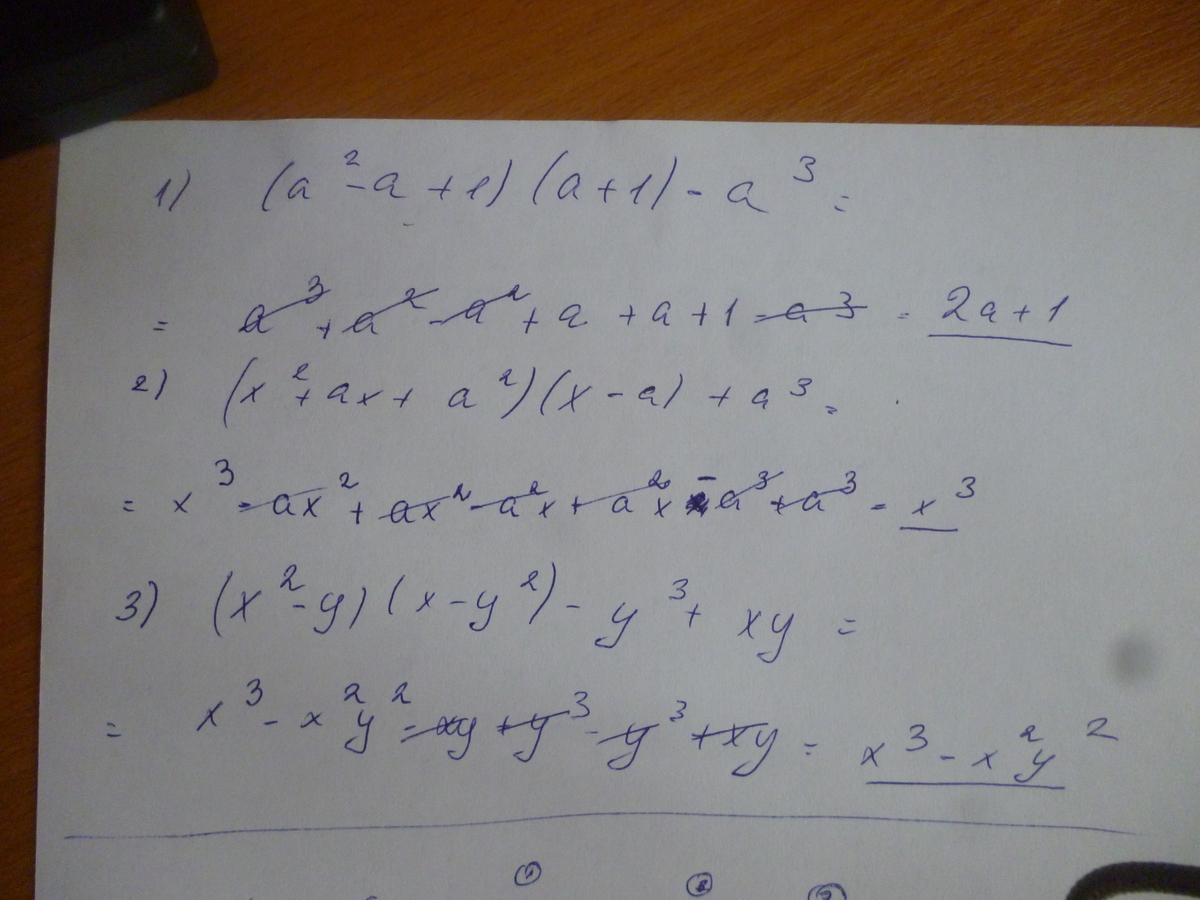 1) (a²-a+1)(a+1)-a³=
= a³+a²-a²+a+a+1-a³ = 2a+1
2) (x²+ax+a²)(x-a)+a³=
= x³-ax²+ax²-a²x+a²x-a³+a³ = x³
3) (x²-y)(x-y²)-y³+xy =
= x³-x²y²-xy+y³-y³+xy = x³-x²y²
① ② ③